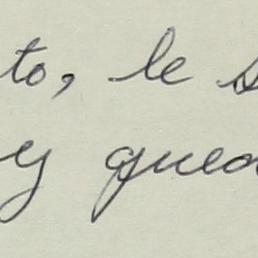 to, le s
y qued